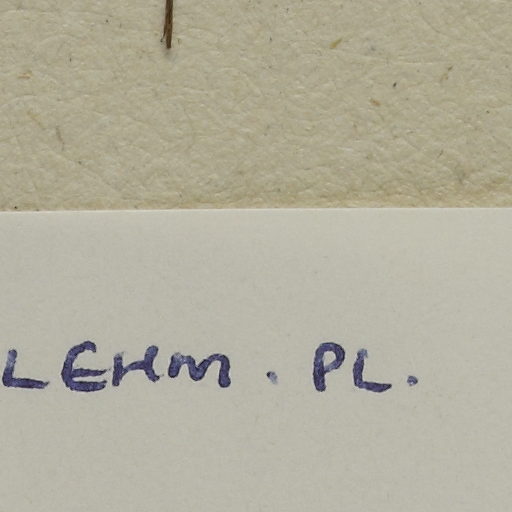 LEHM. PL.